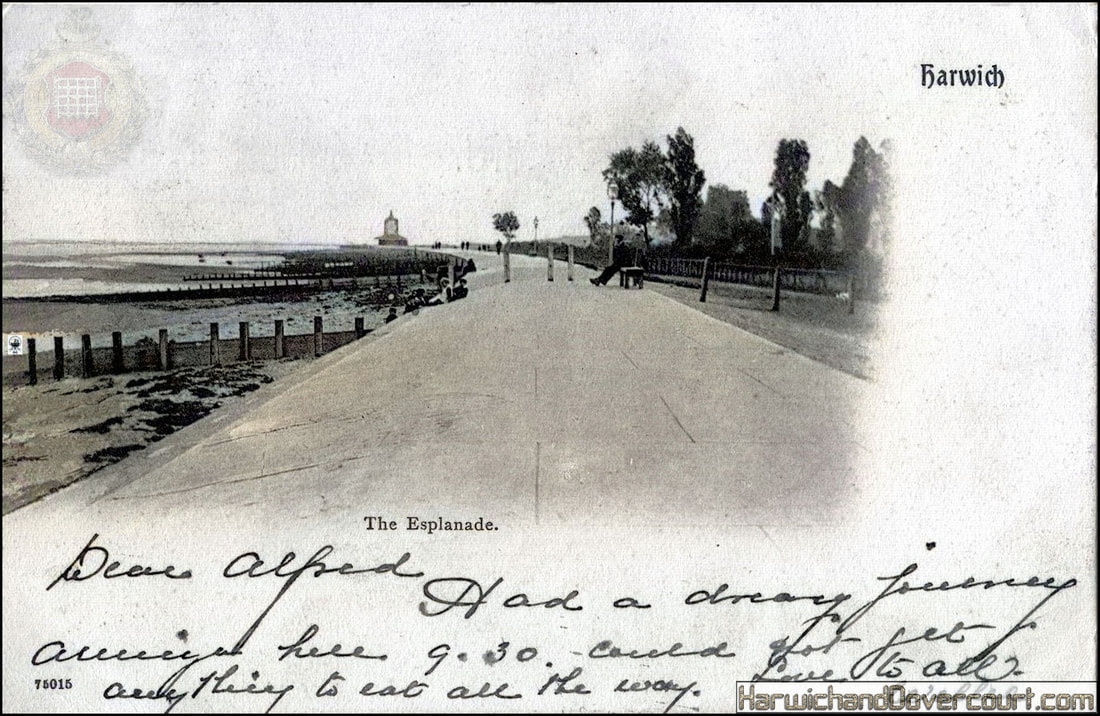 Harwich
The Esplanade.
Dear Alfred
Had a dreary journey
arriving here 9.30. could not get
anything to eat all the way. Love to all.
75015
HarwichandDovercourt.com